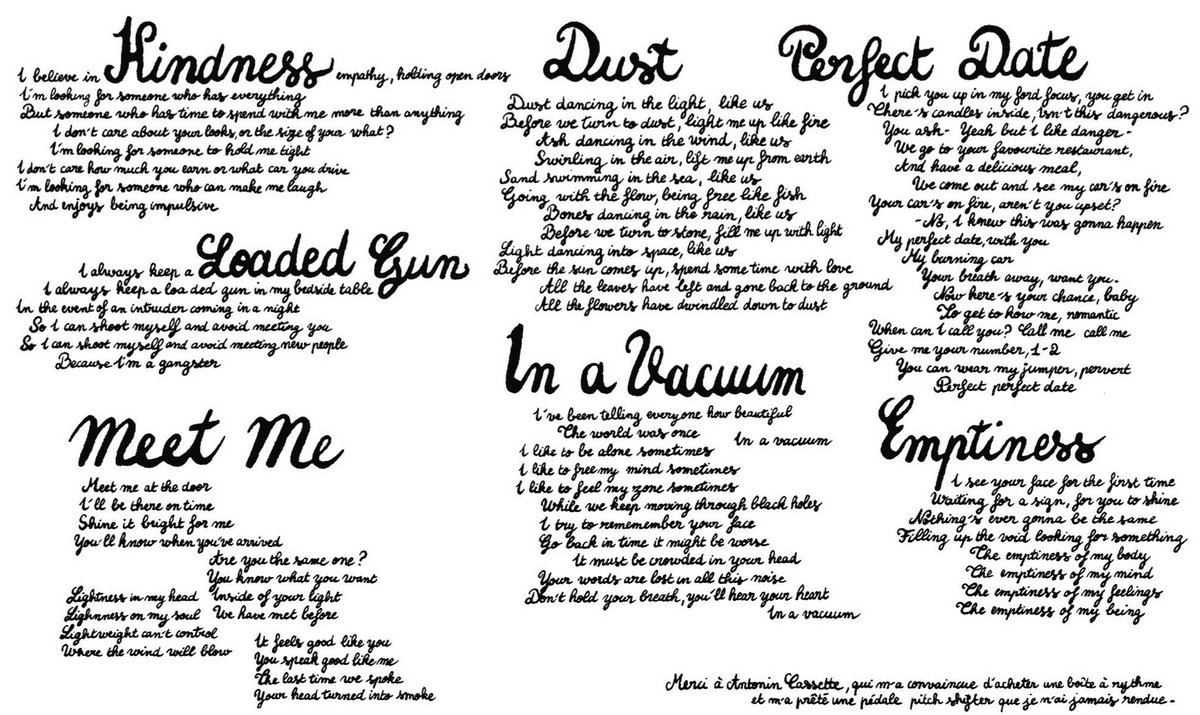 I believe in Kindness empathy, holding open doors
I'm looking for someone who has everything
But someone who has time to spend with me more than anything
I don't care about your looks, or the size of your what?
I'm looking for someone to hold me tight
I don't care how much you earn or what car you drive
I'm looking for someone who can make me laugh
And enjoys being impulsive
I always keep a Loaded Gun
I always keep a loaded gun in my bedside table
In the event of an intruder coming in a night
So I can shoot myself and avoid meeting you
So I can shoot myself and avoid meeting new people
Because I'm a gangster
Meet Me
Meet me at the door
I'll be there on time
Shine it bright for me
You'll know when you've arrived
Are you the same one?
You know what you want
Inside of your light
We have met before
Lightness in my head
Lighnness on my soul
Lightweight can't control
Where the wind will blow
It feels good like you
You speak good like me
The last time we spoke
Your head turned into smoke
Dust
Dust dancing in the light, like us
Before we turn to dust, light me up like fire
Ash dancing in the wind, like us
Swirling in the air, lift me up from earth
Sand swimming in the sea, like us
Going with the flow, being free like fish
Bones dancing in the rain, like us
Before we turn to stone, fill me up with light
Light dancing into space, like us
Before the sun comes up, spend some time with love
All the leaves have left and gone back to the ground
All the flowers have dwindled down to dust
In a Vacuum
I've been telling everyone how beautiful
The world was once
In a vacuum
I like to be alone sometimes
I like to free my mind sometimes
I like to feel my zone sometimes
While we keep moving through black holes
I try to rememember your face
Go back in time it might be worse
It must be crowded in your head
Your words are lost in all this noise
Don't hold your breath, you'll hear your heart
In a vacuum
Perfect Date
I pick you up in my ford focus, you get in
There's candles inside, isn't this dangerous?
You ask- Yeah but I like danger-
We go to your favourite restaurant,
And have a delicious meal,
We come out and see my car's on fire
Your car's on fire, aren't you upset?
-No, I knew this was gonna happen
My perfect date, with you
My burning car
Your breath away, want you-
Now here's your chance, baby
To get to how me, romantic
When can I call you? Call me call me
Give me your number, 1-2
You can wear my jumper, pervert
Perfect perfect date
Emptiness
I see your face for the first time
Waiting for a sign, for you to shine
Nothing's ever gonna be the same
Filling up the void looking for something
The emptiness of my body
The emptiness of my mind
The emptiness of my feelings
The emptiness of my being
Merci à Antonin Cassette, qui m'a convaincue d'acheter une boîte à rythme
et m'a prêté une pédale pitch shifter que je n'ai jamais rendue-